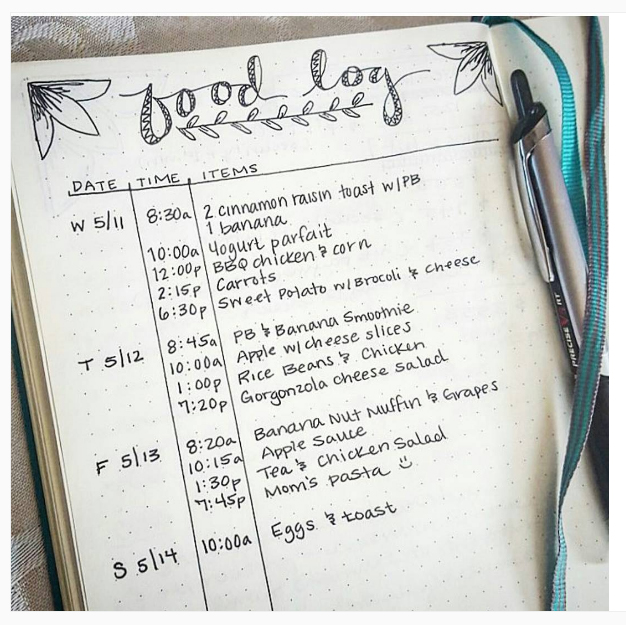 food log
DATE TIME ITEMS
W 5/11 8:30a 2 cinnamon raisin toast w/PB
1 banana
10:00a Yogurt parfait
12:00p BBQ chicken & corn
2:15p Carrots
6:30p Sweet Potato w/Brocoli & Cheese
T 5/12 8:45a PB & Banana Smoothie
10:00a Apple w/cheese slices
1:00p Rice Beans & Chicken
7:20p Gorgonzola cheese salad
F 5/13 8:20a Banana Nut Muffin & Grapes
10:15a Apple Sauce
1:30p Tea & Chicken Salad
7:45p Mom's pasta
S 5/14 10:00a Eggs & toast
PRECISE V5 RT